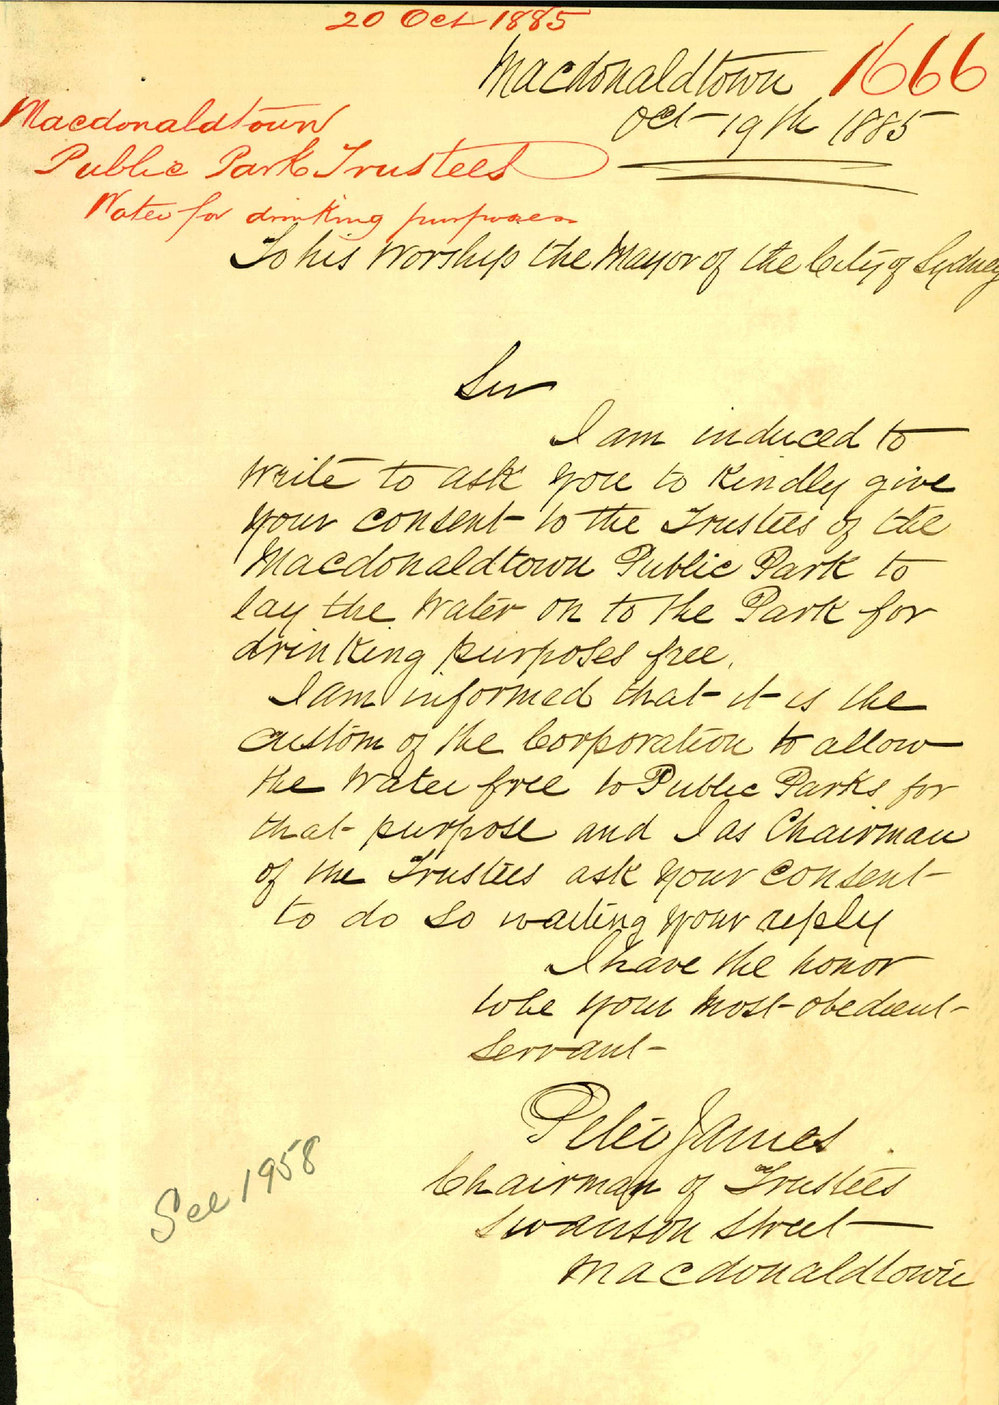 20 Oct 1885
Macdonaldtown 1666
Oct 19th 1885
Macdonaldtown
Public Park Trustees
Water for drinking purposes
To his Worship the Mayor of the City of Sydney
Sir
I am induced to
Write to ask you to Kindly give
your consent to the Trustees of the
Macdonaldtown Public Park to
lay the Water on to the Park for
drinking purposes free.
I am informed that it is the
custom of the Corporation to allow
the Water free to Public Parks for
that purpose and I as Chairman
of the Trustees ask your consent
to do so waiting your reply
I have the honor
to be your most obedient
servant
Peter James
Chairman of Trustees
Swanson Street
Macdonaldtown
See 1958